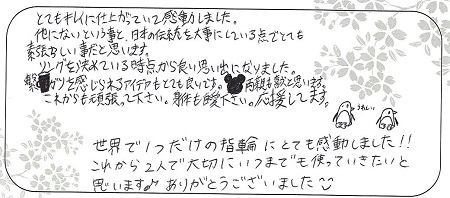 とてもキレイに仕上がていて感動しました。
他にないという事と、日本の伝統を大事にしている点でとても
素晴らしい事だと思います。
リングを決めている時点から良い思い出になりました。
繋がりを感じられるアイデアもとても良いです。
これからも頑張って下さい。応援してます。
うれしい
世界で1つだけの指輪にとても感動しました!!
これから2人で大切にいつまでも使っていきたいと
思います♪ ありがとうございました